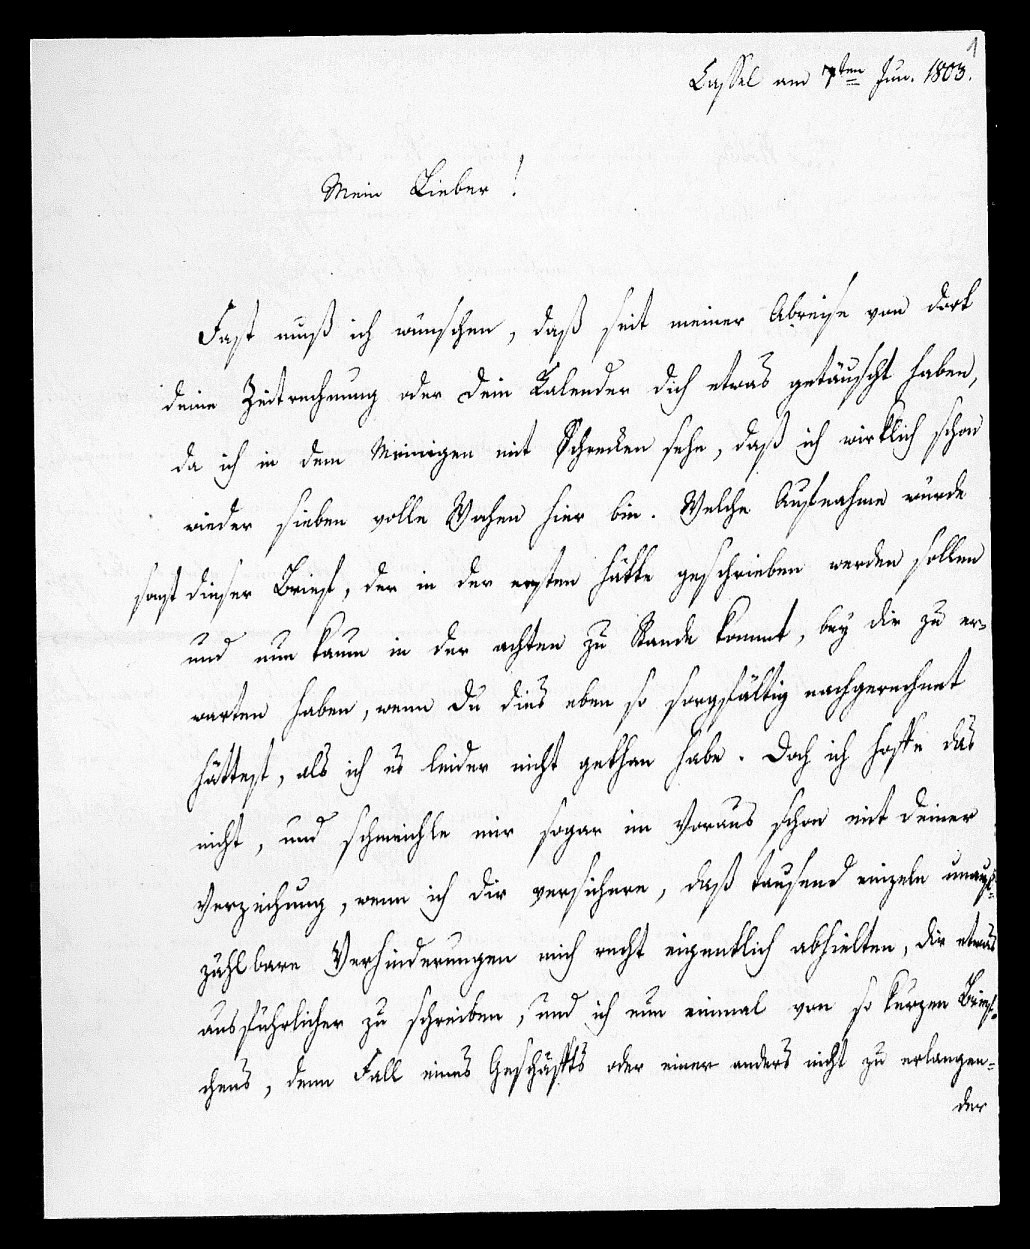 1
Cassel am 7ten Jun. 1803.
Mein Lieber!
Fast muß ich wünschen, daß seit meiner Abreise von dort
deine Zeitrechnung oder dein Kalender dich etwas getäuscht haben,
da ich in dem Meinigen mit Schrecken sehe, daß ich wirklich schon
wieder sieben volle Wochen hier bin. Welche Aufnahme würde
sonst dieser Brief, der in der ersten hätte geschrieben werden sollen
und nun kaum in der achten zu Stande kommt, bey dir zu er-
warten haben, wenn du dies eben so sorgfältig nachgerechnet
hättest, als ich es leider nicht gethan habe. Doch ich hoffe das
nicht, und schmeichle mir sogar im Voraus schon mit deiner
Verzeihung, wenn ich dir versichere, daß tausend einzeln unauf-
zählbare Verhinderungen mich recht eigentlich abhielten, dir etwas
ausführlicher zu schreiben, und ich nun einmal von so kurzen Brief-
chens, denn Fall eines Geschäffts oder einer anders nicht zu erlangen-
der